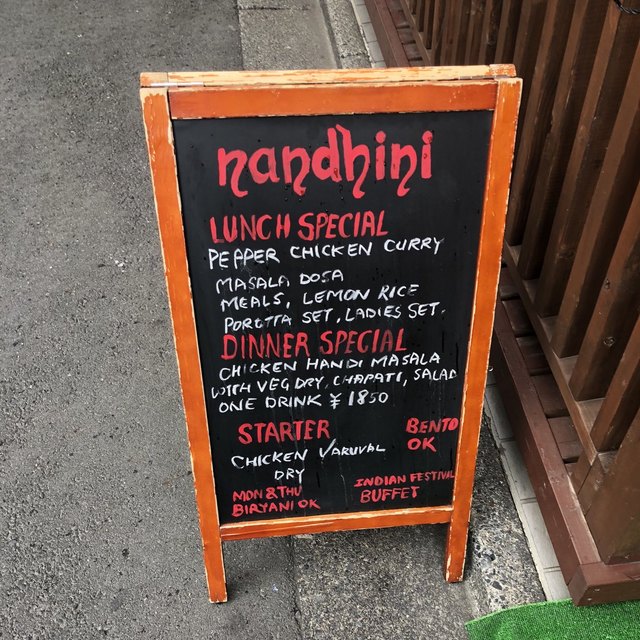 nandhini
LUNCH SPECIAL
PEPPER CHICKEN CURRY
MASALA DOSA
MEALS, LEMON RICE
POROTTA SET, LADIES SET.
DINNER SPECIAL
CHICKEN HANDI MASALA
WITH VEG DRY, CHAPATI, SALAD
ONE DRINK ¥ 1850
STARTER
CHICKEN VARUVAL
DRY
BENTO
OK
MON & THU
BIRYANI OK
INDIAN FESTIVAL
BUFFET